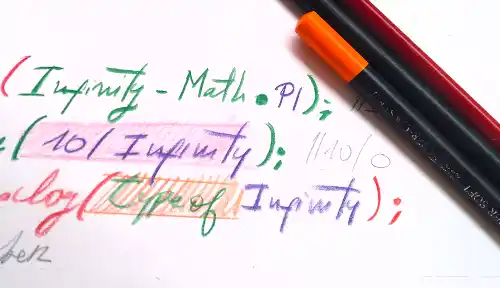 (Infinity - Math.PI);
(10/Infinity); //10/0
log(typeof Infinity);
ber